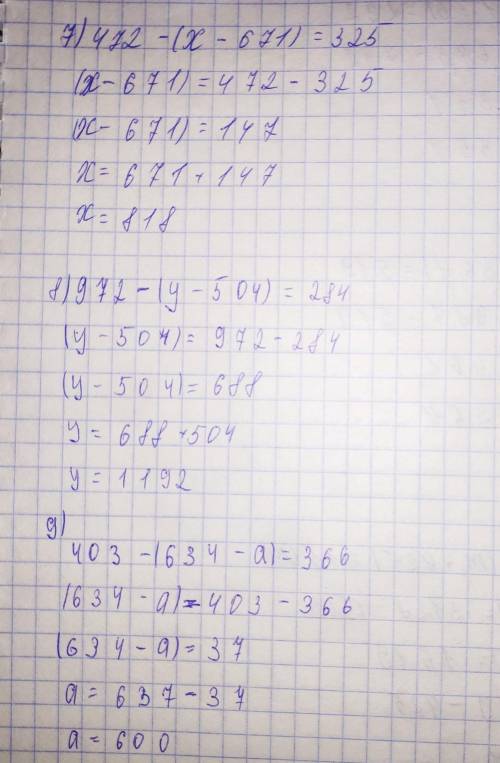 7) 472 - (x - 671) = 325
(x - 671) = 472 - 325
(x - 671) = 147
x = 671 + 147
x = 818
8) 972 - (y - 504) = 284
(y - 504) = 972 - 284
(y - 504) = 688
y = 688 + 504
y = 1192
9)
403 - (634 - a) = 366
(634 - a) = 403 - 366
(634 - a) = 37
a = 637 - 37
a = 600